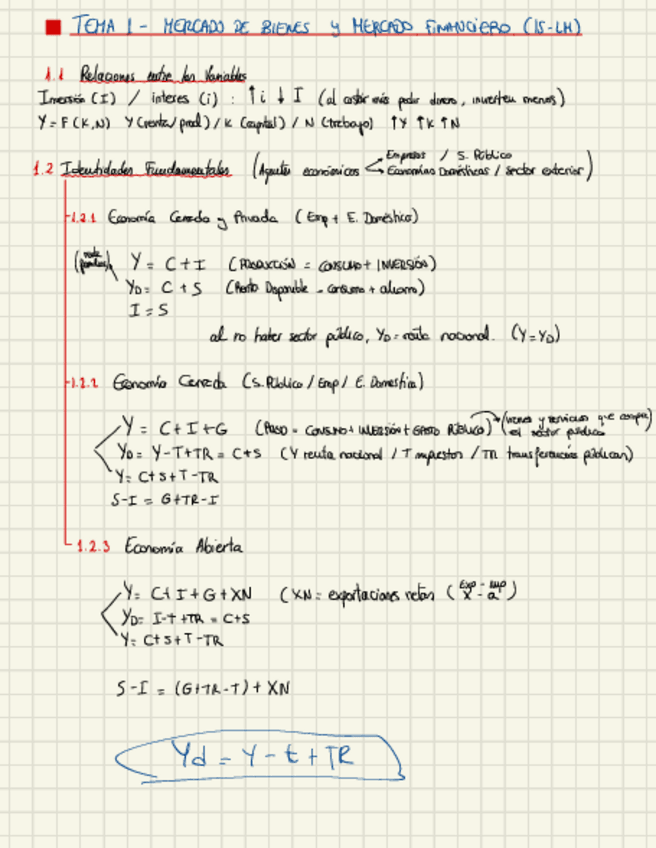 TEMA 1 - MERCADO DE BIENES y MERCADO FINANCIERO (IS-LM)
1.1 Relaciones entre las Variables
Inversión (I) / interes (i) : ↑i ↓ I (al costar más pedir dinero, invierten menos)
Y = F(K,N) Y (renta/prod) / K (capital) / N (trabajo) ↑Y ↑K ↑N
1.2 Identidades Fundamentales (Agentes económicos
Empresas / S. Público
Economías Domésticas / sector exterior)
1.2.1 Economía Cerrada y Privada (Emp + E. Doméstica)
Y = C + I (PRODUCCIÓN = CONSUMO + INVERSIÓN)
YD = C + S (Renta Disponible = consumo + ahorro)
I = S
al no haber sector público, YD = renta nacional. (Y = YD)
1.2.2 Economía Cerrada (S. Público / Emp / E. Doméstica)
Y = C + I + G (PROD = CONSUMO + INVERSIÓN + GASTO PÚBLICO) → (bienes y servicios que compra
el sector público
YD = Y - T + TR = C + S (Y renta nacional / T impuestos / TR transferencias públicas)
Y = C + S + T - TR
S - I = G + TR - I
1.2.3 Economía Abierta
Y = C + I + G + XN (XN = exportaciones netas (Exp - Imp
YD = I - t + TR = C + S
Y = C + S + T - TR
S - I = (G + TR - T) + XN
Yd = Y - t + TR